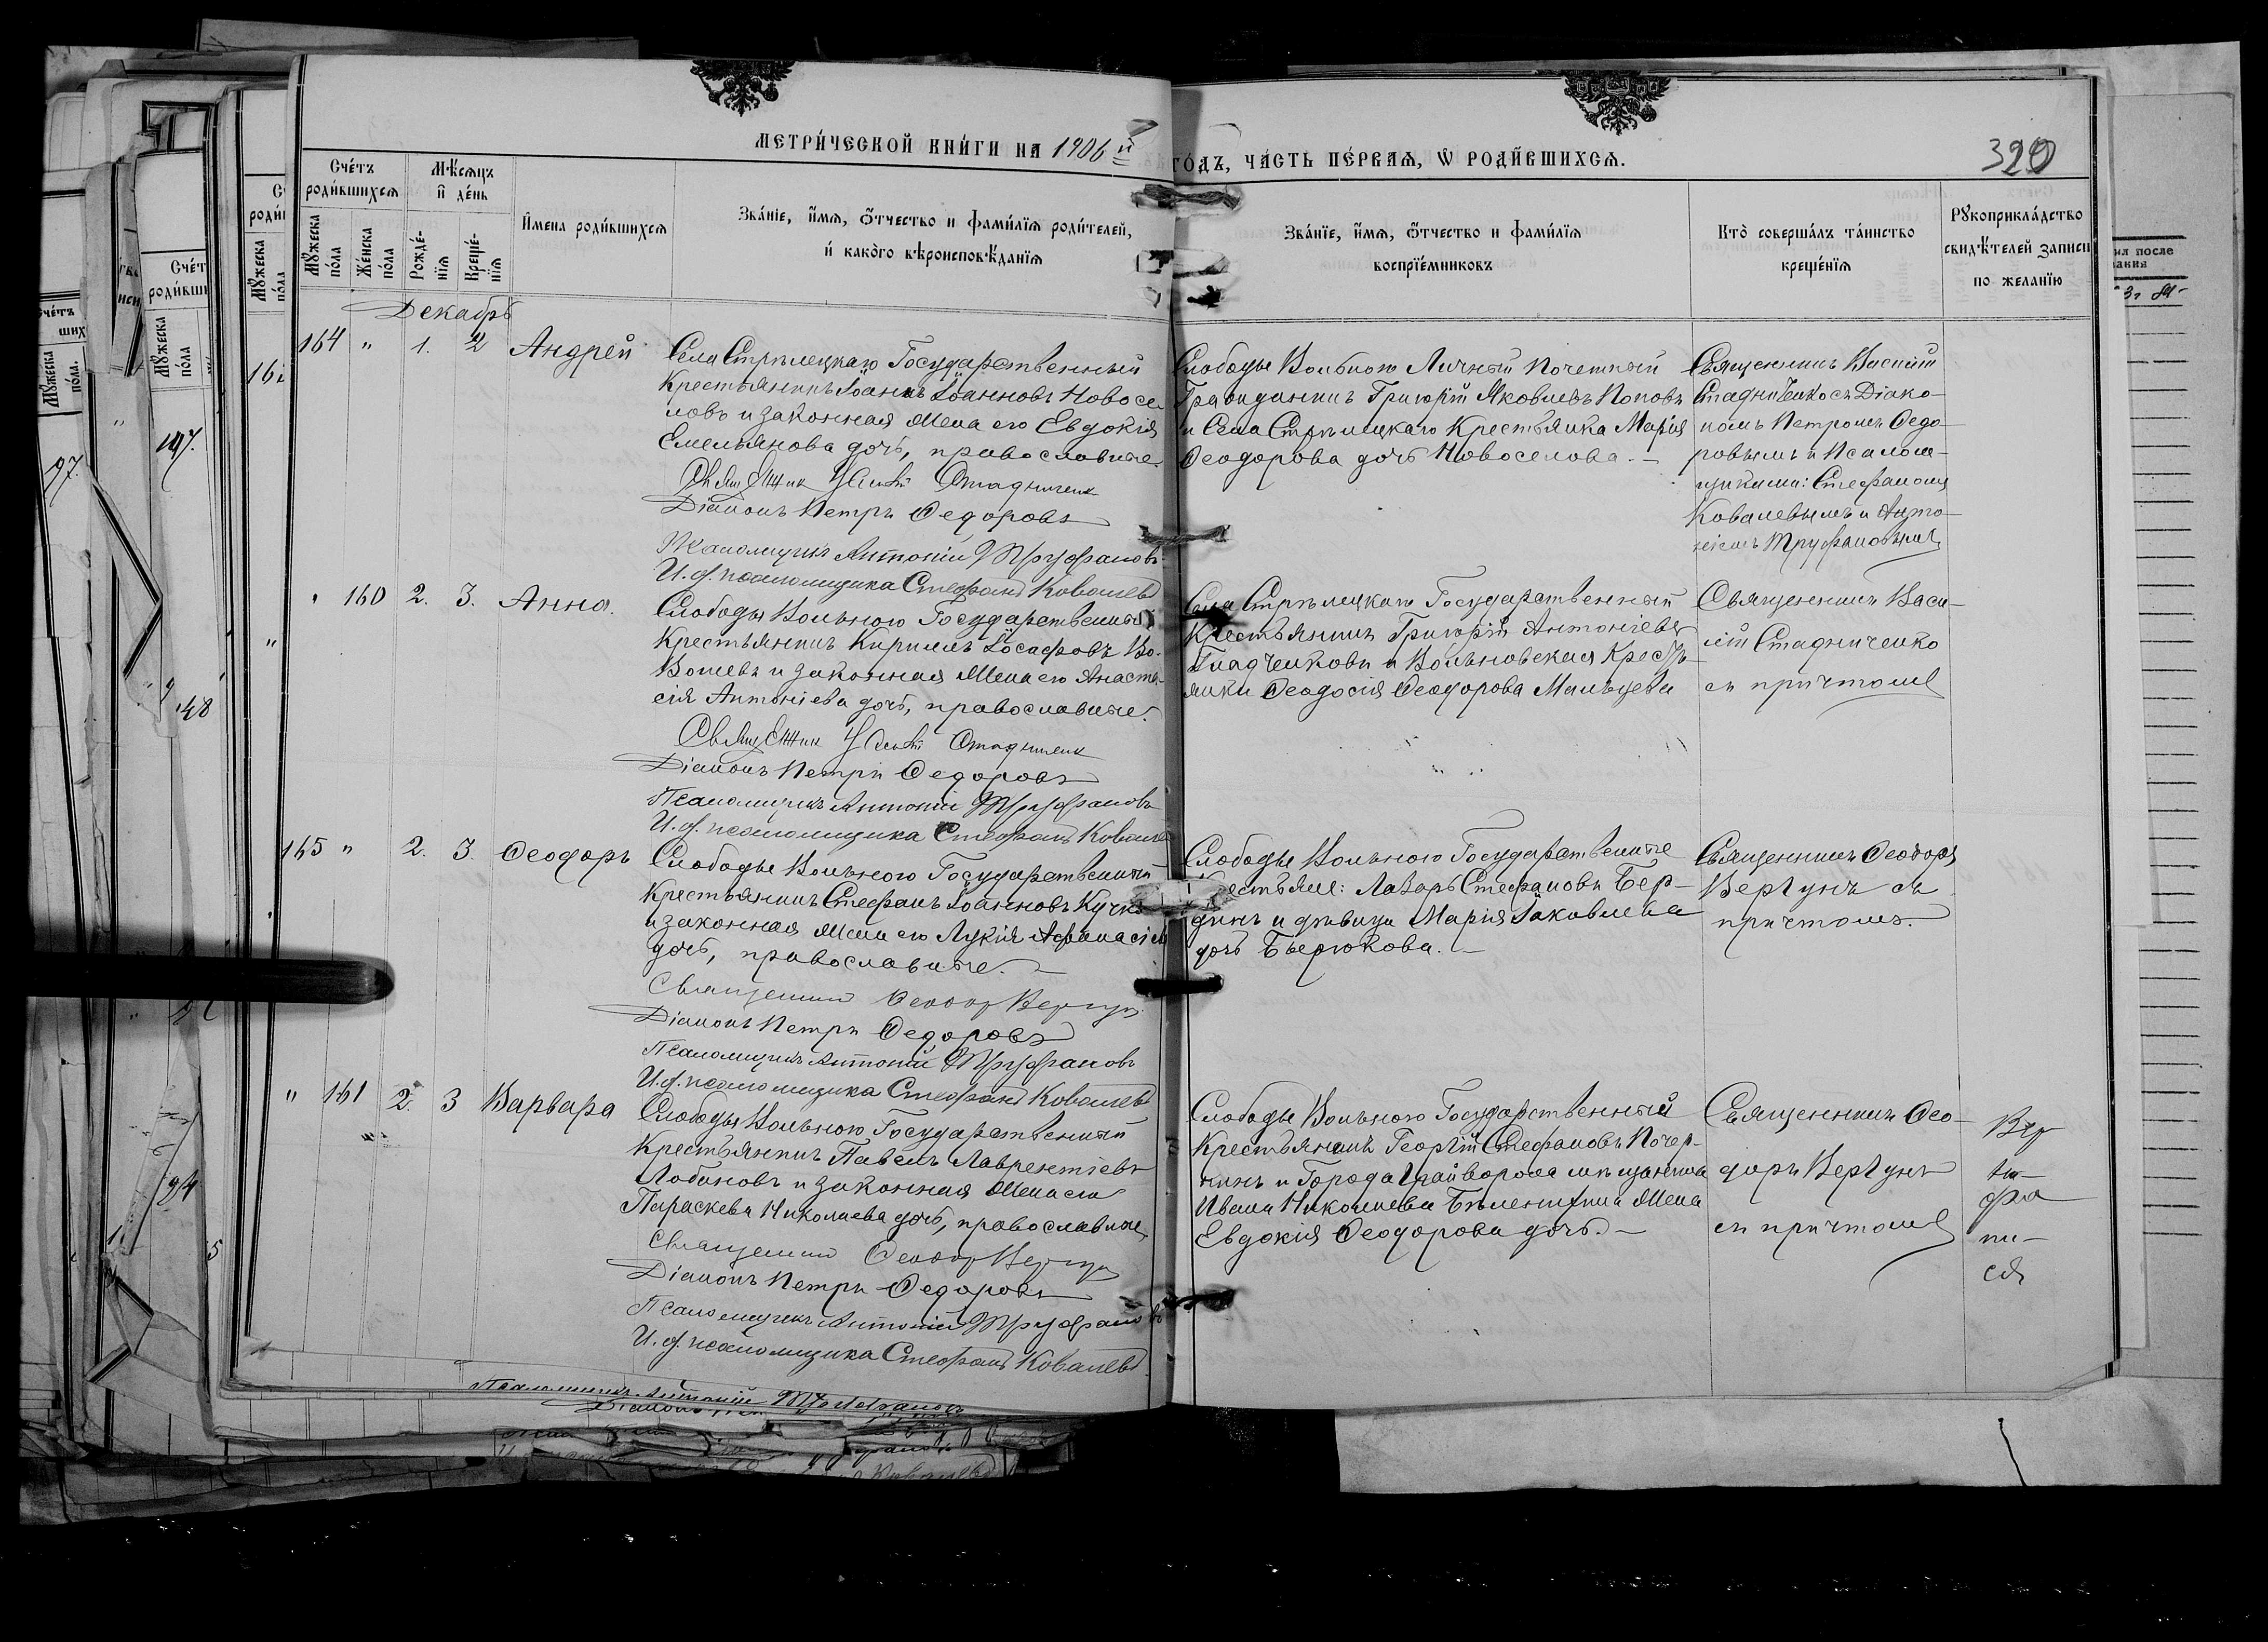 МЕТРИ́ЧЕСКОЙ КНИ́ГИ НА 1906 й
ГО́ДЪ, ЧА́СТЬ ПЕ́РВАѦ, Ѡ҆ РОДИ́ВШИХСѦ.
320
Сче́тъ роди́вшихсѧ
Мѣ́сѧцъ и҆ де́нь
И҆мена роди́вшихсѧ
Зва́нїе, и҆́мѧ, ѻ҆́тчество и фами́лїѧ роди́телей,
и҆ како́гѡ вѣроисповѣ́данїѧ
Зва́нїе, и҆́мѧ, ѻ҆́тчество и фами́лїѧ
воспрїе́мниковъ
Кто̀ соверша́лъ та́инство
креще́нїѧ
Рꙋкоприкла́дство
свидѣ́телей записи
по жела́нїю
Мꙋжеска по́ла
Же́нска по́ла
Рожде́нїѧ
Креще́нїѧ
Декабрь
164 " 1. 2 Андрей
Села Стрѣлецкаго Государственный
Крестьянинъ Іоаннъ Іоанновъ Новосе-
ловъ и законная жена его Евдокія
Емельянова дочь, православные.
Діаконъ Петръ Ѳедоровъ
Псаломщикъ Антоній Труфановъ
И. д. псаломщика Стефанъ Ковалевъ
Слободы Вольного Личный Почетный
Гражданинъ Григорій Яковлевъ Поповъ
и Села Стрѣлецкаго Крестьянка Марія
Ѳеодорова дочь Новоселова. —
Священникъ Василій
Стадниченко съ Діако-
номъ Петромъ Ѳедо-
ровымъ и Псалом-
щиками: Стефаномъ
Ковалевымъ и Анто-
ніемъ Труфановымъ
" 160 2. 3. Анна.
Слободы Вольного Государственный
Крестьянинъ Кириллъ Іосафовъ
и законная жена его Анаста-
сія Антоніева дочь, православные.
Діаконъ Петръ Ѳедоровъ
Псаломщикъ Антоній Труфановъ
И. д. псаломщика Стефанъ Ковалевъ
Села Стрѣлецкаго Государственный
Крестьянинъ Григорій Антоніевъ
Гладченковъ и Вольновская Кресть-
янка Ѳеодосія Ѳеодорова Мальцева
Священникъ Васи-
лій Стадниченко
съ причтомъ
165 " 2. 3. Ѳеодоръ
Слободы Вольного Государственный
Крестьянинъ Стефанъ Іоанновъ
и законная жена его Лукія Аѳанасіева
дочь, православные. —
Священникъ Ѳеодоръ Вергунъ
Діаконъ Петръ Ѳедоровъ
Псаломщикъ Антоній Труфановъ
И. д. псаломщика Стефанъ Ковалевъ
Слободы Вольного Государственные
Крестьяне: Лазарь Стефановъ Бер-
динъ и дѣвица Марія Іаковлева
дочь Бирюкова. —
Священникъ Ѳеодоръ
Вергунъ съ
причтомъ.
" 161 2. 3 Варвара
Слободы Вольного Государственный
Крестьянинъ Павелъ Лаврентіевъ
Лобановъ и законная жена его
Параскева Николаева дочь, православные.
Священникъ Ѳеодоръ Вергунъ
Діаконъ Петръ Ѳедоровъ
Псаломщикъ Антоній Труфановъ
И. д. псаломщика Стефанъ Ковалевъ
Слободы Вольного Государственный
Крестьянинъ Георгій Стефановъ Почер-
кинъ и Города Грайворона мѣщанина
Ивана Николаева жена
Евдокія Ѳеодорова дочь. —
Священникъ Ѳео-
доръ Вергунъ
съ причтомъ